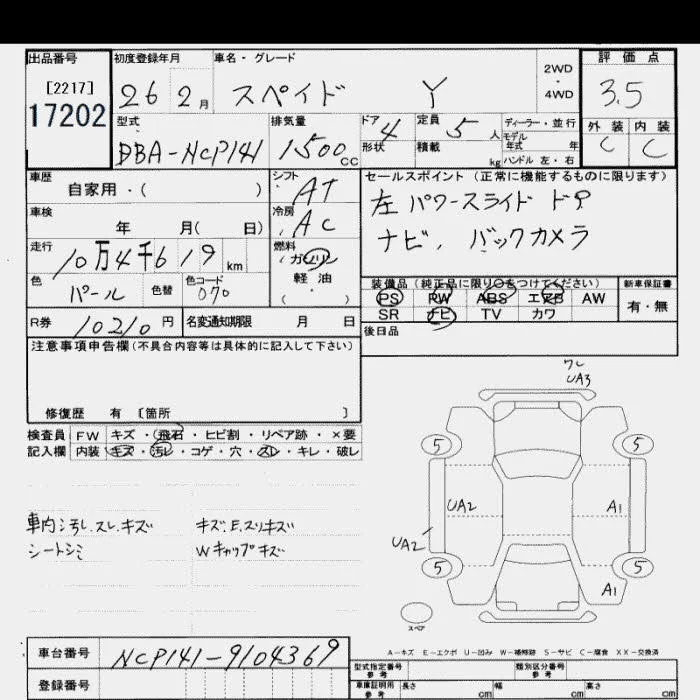 出品番号 初度登録年月 車名・グレード 2WD・4WD 評価点
[2217] 17202 26 2月 スペイド Y 3.5
型式 排気量 ドア 4 定員 5人 ディーラー・並行 外装 内装
DBA-NCP141 1500CC 形状 積載 kg モデル年式 年 ハンドル 左・右 C C
車歴 シフト セールスポイント (正常に機能するものに限ります)
自家用・( ) AT 左 パワースライド ドア
車検 冷房 ナビ、バックカメラ
年 月( 日) AC
走行 燃料
10万4千619km ガソリン
色 色替 色コード 軽油 装備品(純正品に限り○をつけてください) 新車保証書
パール 070 ・( ) PS PW ABS エアB AW 有・無
R券 10210円 名変通知期限 月 日 SR ナビ TV カワ
注意事項申告欄(不具合内容等は具体的に記入して下さい) 後日品
修復歴 有 〔箇所 〕
検査員 FW キズ・飛石・ヒビ割・リペア跡・×要
記入欄 内装 キズ・汚レ・コゲ・穴・スレ・キレ・破レ
車内汚レ.スレ.キズ キズ.E.スリキズ
シートシミ Wキャップキズ
ワレ
UA3
5 5
UA2 A1
UA2
5 5
A1
スペア
A-キズ E-エクボ U-凹み W-補修跡 S-サビ C-腐食 XX-交換済
車台番号 NCP141-9104369 型式指定番号 参考 類別区分番号 参考
登録番号 車庫証明用 参考 長さ cm 幅 cm 高さ cm